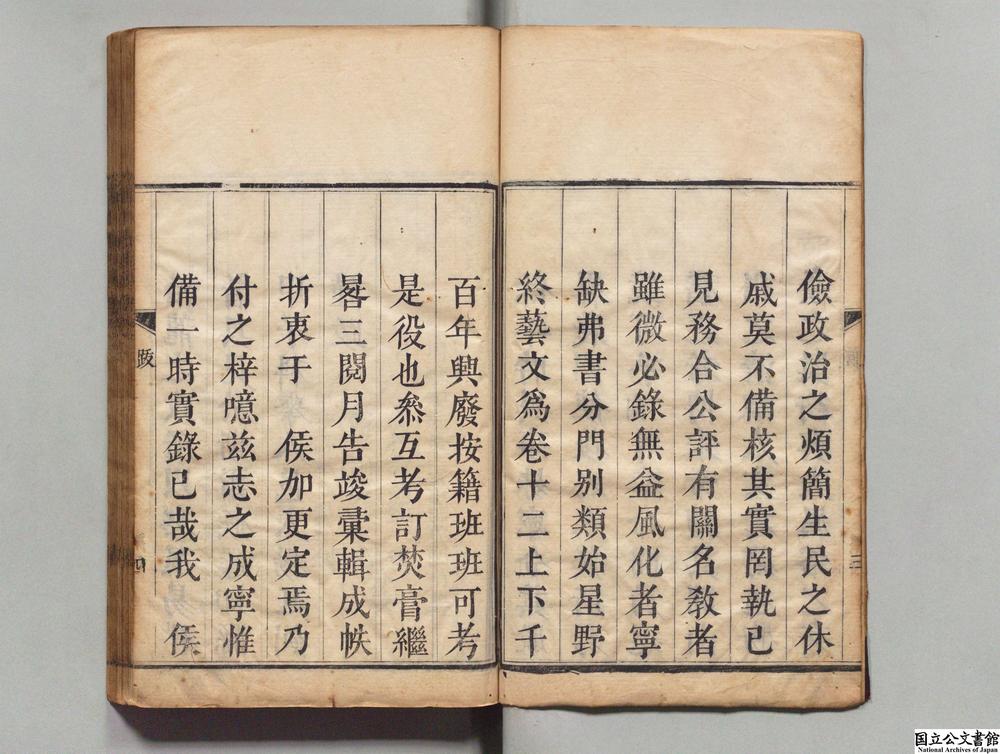 儉政治之煩簡生民之休
戚莫不備核其實罔執已
見務合公評有關名敎者
雖微必錄無益風化者寧
缺弗書分門別類始星野
終藝文爲卷十二上下千
百年興廢按籍班班可考
是役也叅互考訂焚膏繼
晷三閱月告竣彙輯成帙
折衷于　侯加更定焉乃
付之梓噫茲志之成寧惟
備一時實錄已哉我　侯
跋
四
三
国立公文書館
National Archives of Japan